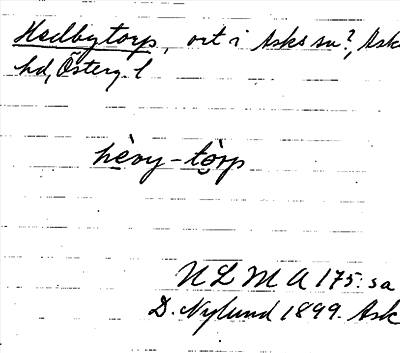 Hedbytorp, ort i Asks sn?, Ask
hd, Österg. l
hèvy-tòrp
N L M A 175: sa
D. Nylund 1899. Ask